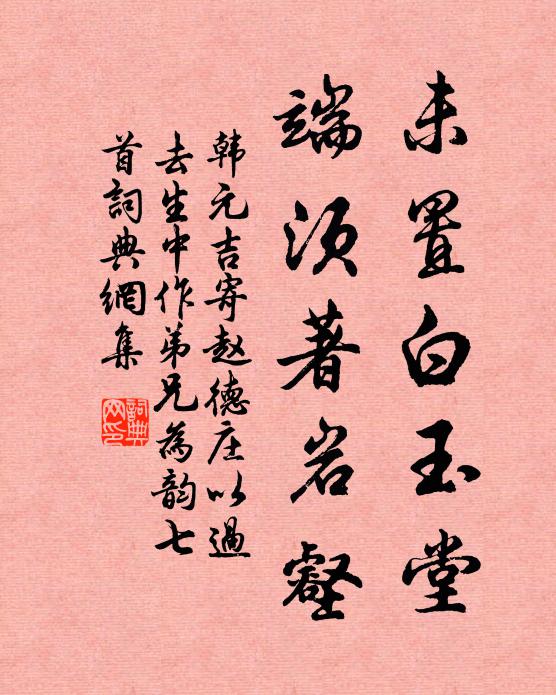 未置白玉堂
端须著岩壑
韩元吉寄赵德庄以過
去生中作弟兄為韵七
首詞典網集
詞典网印